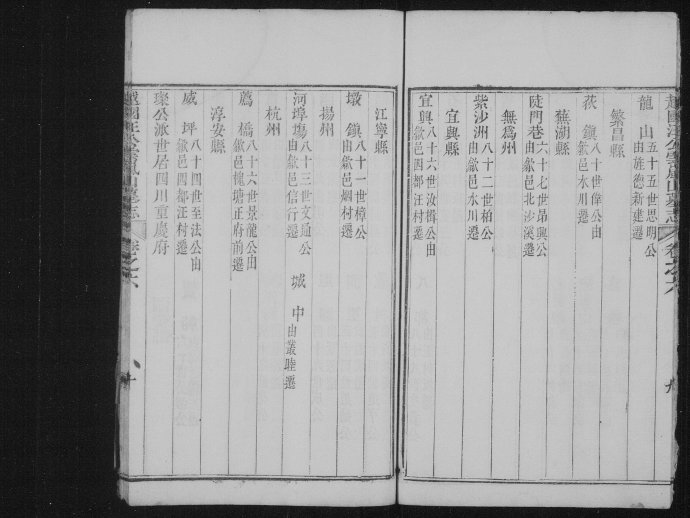 越國汪公雲嵐山墓志 卷之六 九
龍山 五十五世思明公由旌德新建遷
繁昌縣
荻鎮 八十一世倖公由歙邑水川遷
蕪湖縣
陡門巷 六十七世昂興公由歙邑北沙溪遷
無爲州
紫沙洲 八十二世柏公由歙邑水川遷
宜興縣
宜興 八十六世汝樽公由歙邑四都汪村遷
江寧縣
墩鎮 八十一世樟公由歙邑烟村遷
揚州
河埠塲 八十三世文通公由歙邑信行遷 城中 由叢睦遷
杭州
薦橋 八十六世景龍公由歙邑槐塘正府前遷
淳安縣
威坪 八十四世至法公由歙邑四都汪村遷
璨公派世居四川重慶府
越國汪公雲嵐山墓志 卷之六 十